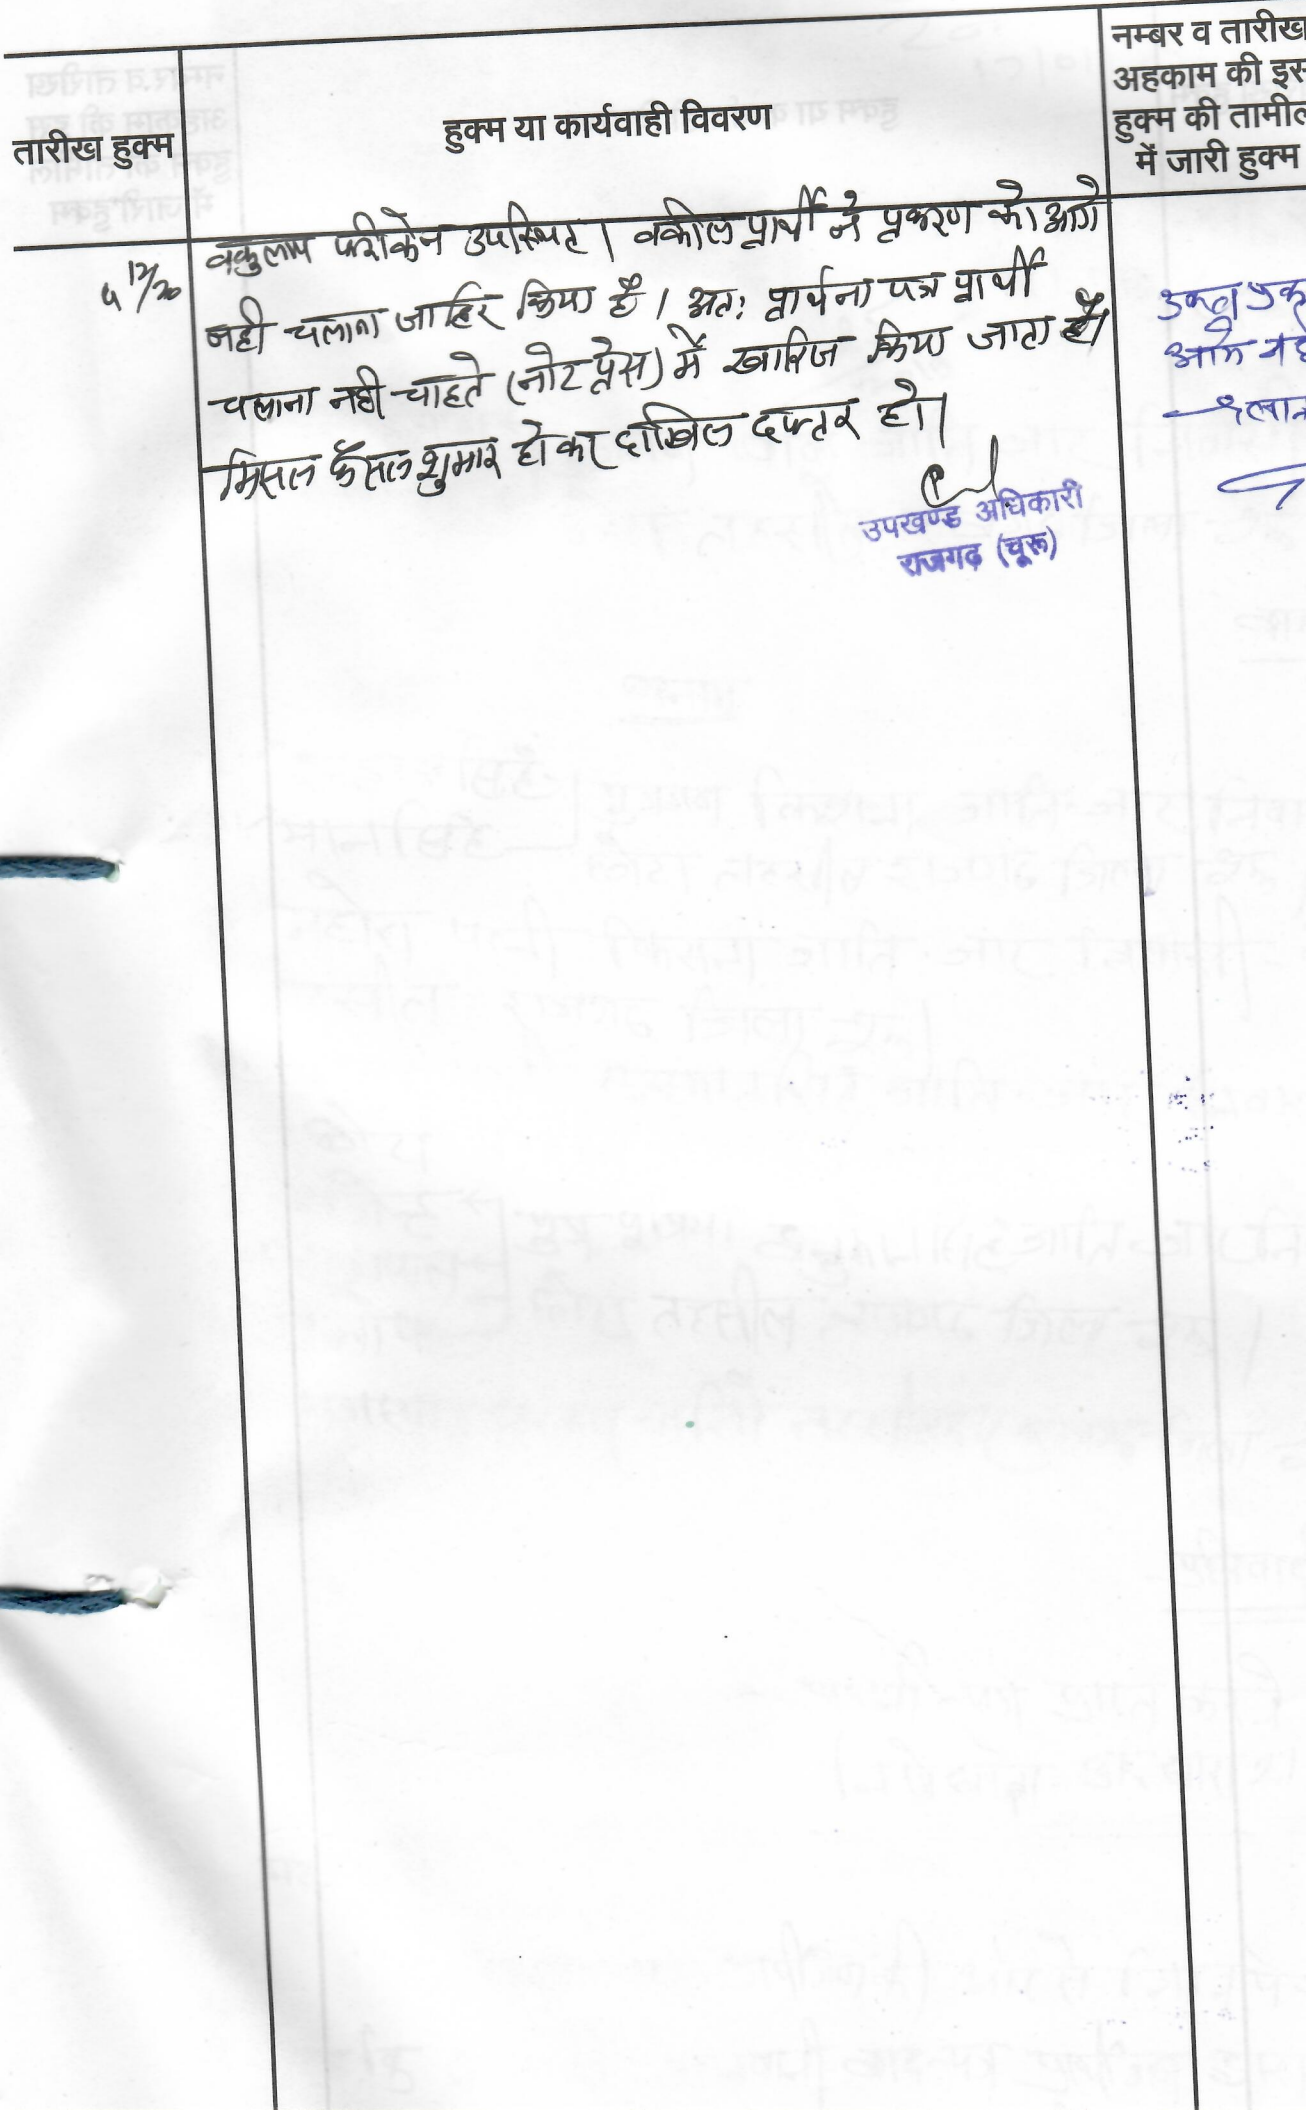 तारीख हुक्म
हुक्म या कार्यवाही विवरण
नम्बर व तारीख
अहकाम की इस
हुक्म की तामील
में जारी हुक्म
वकुलाय फरीकेन उपस्थित। वकील प्रार्थी ने प्रकरण को आगे
नही चलाना जाहिर किया है। अत: प्रार्थना पत्र प्रार्थी
चलाना नही चाहते (नोट प्रेस) में खारिज किया जाता है।
मिसल फैसल शुमार होकर दाखिल दफ्तर हो।
उपखण्ड अधिकारी
राजगढ़ (चूरू)